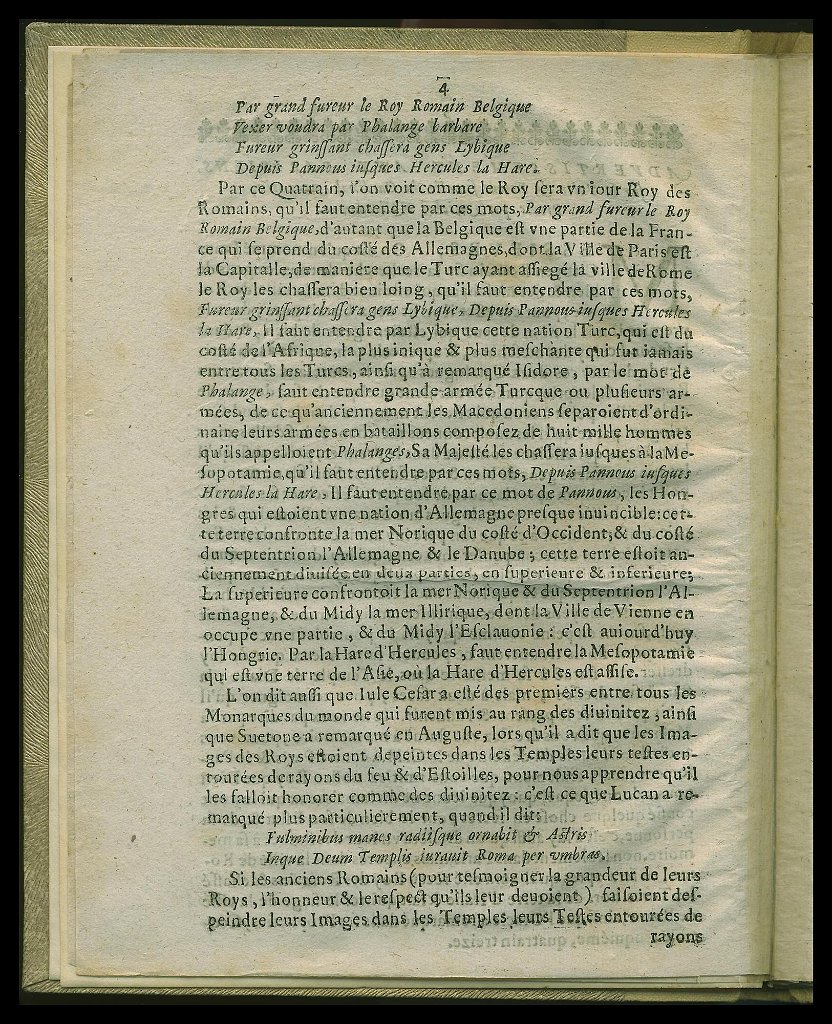 4
Par grand fureur le Roy Romain Belgique
Vexer voudra par Phalange barbare
Fureur grinſſant chaſſera gens Lybique
Depuis Pannous iuſques Hercules la Hare.
Par ce Quatrain, l'on voit comme le Roy ſera vn iour Roy des
Romains, qu'il faut entendre par ces mots, Par grand fureur le Roy
Romain Belgique, d'autant que la Belgique eſt vne partie de la Fran-
ce qui ſe prend du coſté des Allemagnes, dont la Ville de Paris eſt
la Capitalle, de maniere que le Turc ayant aſſiegé la ville de Rome
le Roy les chaſſera bien loing, qu'il faut entendre par ces mots,
Fureur grinſſant chaſſera gens Lybique, Depuis Pannous iuſques Hercules
la Hare, Il faut entendre par Lybique cette nation Turc, qui eſt du
coſté de l'Afrique, la plus inique & plus meſchante qui fut iamais
entre tous les Turcs, ainſi qu'à remarqué Iſidore, par le mot de
Phalange, faut entendre grande armée Turcque ou pluſieurs ar-
mées, de ce qu'anciennement les Macedoniens ſeparoient d'ordi-
naire leurs armées en bataillons compoſez de huit mille hommes
qu'ils appelloient Phalanges, Sa Majeſté les chaſſera iuſques à la Me-
ſopotamie, qu'il faut entendre par ces mots, Depuis Pannous iuſques
Hercules la Hare, Il faut entendre par ce mot de Pannous, les Hon-
gres qui eſtoient vne nation d'Allemagne preſque inuincible: cet-
te terre confronte la mer Norique du coſté d'Occident, & du coſté
du Septentrion l'Allemagne & le Danube; cette terre eſtoit an-
ciennement diuiſée en deux parties, en ſuperieure & inferieure;
La ſuperieure confrontoit la mer Norique & du Septentrion l'Al-
lemagne, & du Midy la mer Illirique, dont la Ville de Vienne en
occupe vne partie, & du Midy l'Eſclauonie: c'eſt auiourd'huy
l'Hongrie. Par la Hare d'Hercules, faut entendre la Meſopotamie
qui eſt vne terre de l'Aſie, où la Hare d'Hercules eſt aſſiſe.
L'on dit auſſi que Iule Ceſar a eſté des premiers entre tous les
Monarques du monde qui furent mis au rang des diuinitez, ainſi
que Suetone a remarqué en Auguſte, lors qu'il a dit que les Ima-
ges des Roys eſtoient depeintes dans les Temples leurs teſtes en-
tourées de rayons du feu & d'Eſtoilles, pour nous apprendre qu'il
les falloit honorer comme des diuinitez: c'eſt ce que Lucan a re-
marqué plus particulierement, quand il dit:
Fulminibus manes radiiſque ornabit & Aſtris
Inque Deum Templis iurauit Roma per vmbras.
Si les anciens Romains (pour teſmoigner la grandeur de leurs
Roys, l'honneur & le reſpect qu'ils leur deuoient) faiſoient deſ-
peindre leurs Images dans les Temples leurs Teſtes entourées de
rayons